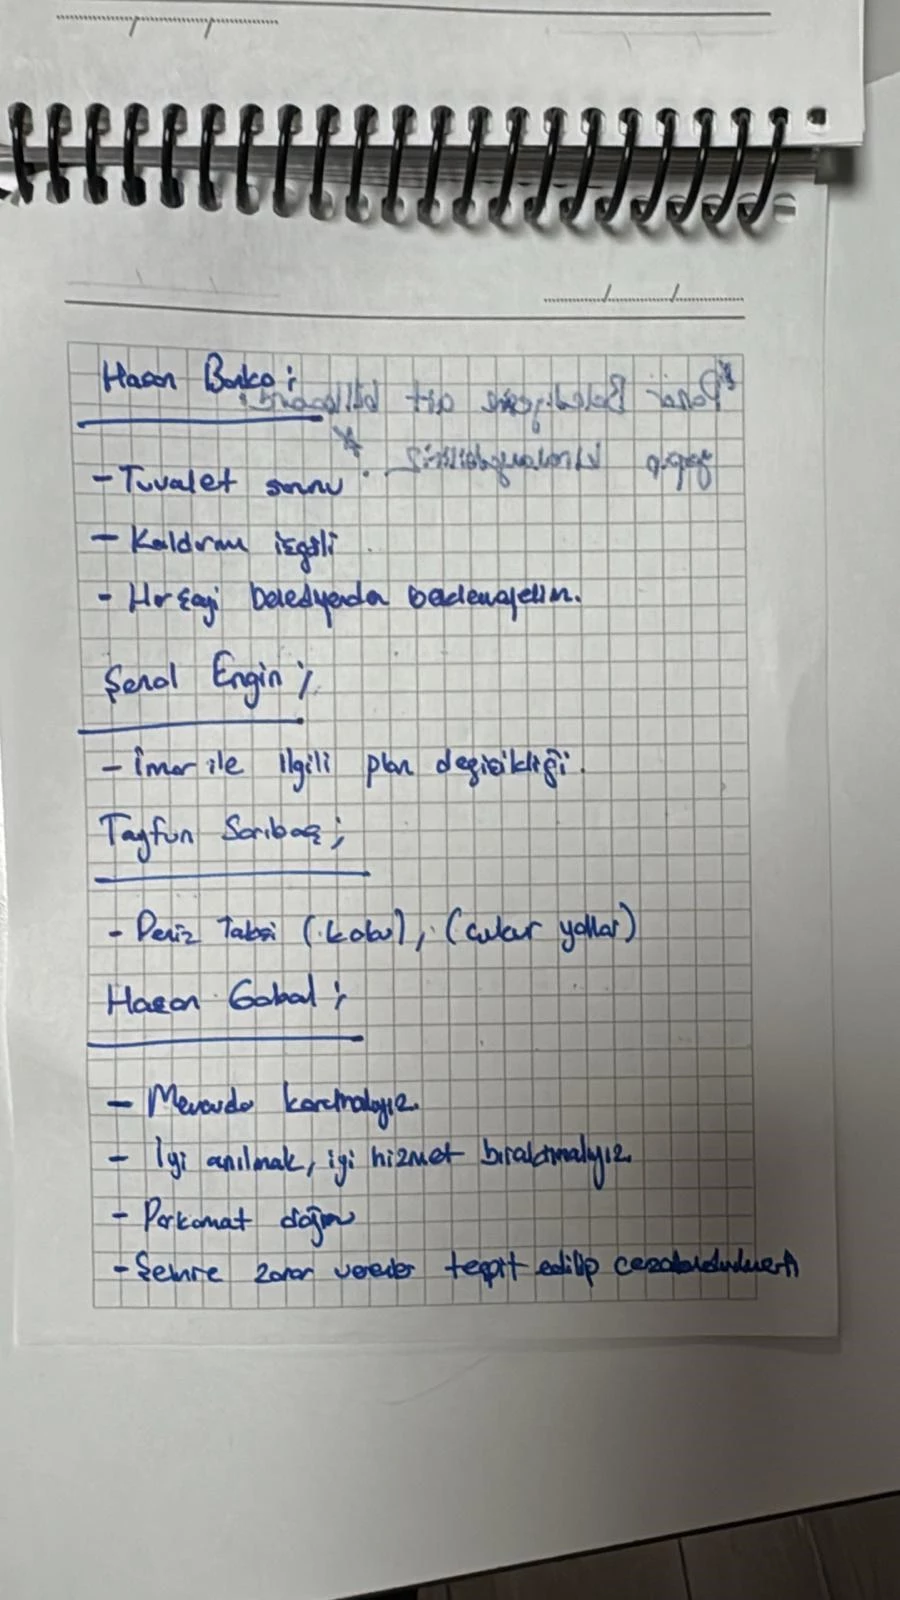 Hasan Baska;
- Tuvalet sorunu
- Kaldırım işgali
- Her şeyi belediyeden beklemeyelim.
Şenol Engin;
- İmar ile ilgili plan değişikliği.
Tayfun Sarıbaş;
- Deniz Taksi (koku), (çukur yollar)
Hasan Gobal;
- Mevcudu korumalıyız.
- İyi anılmak, iyi hizmet bırakmalıyız.
- Parkomat doğru
- Şehre zarar verenler tespit edilip cezalandırılmalı